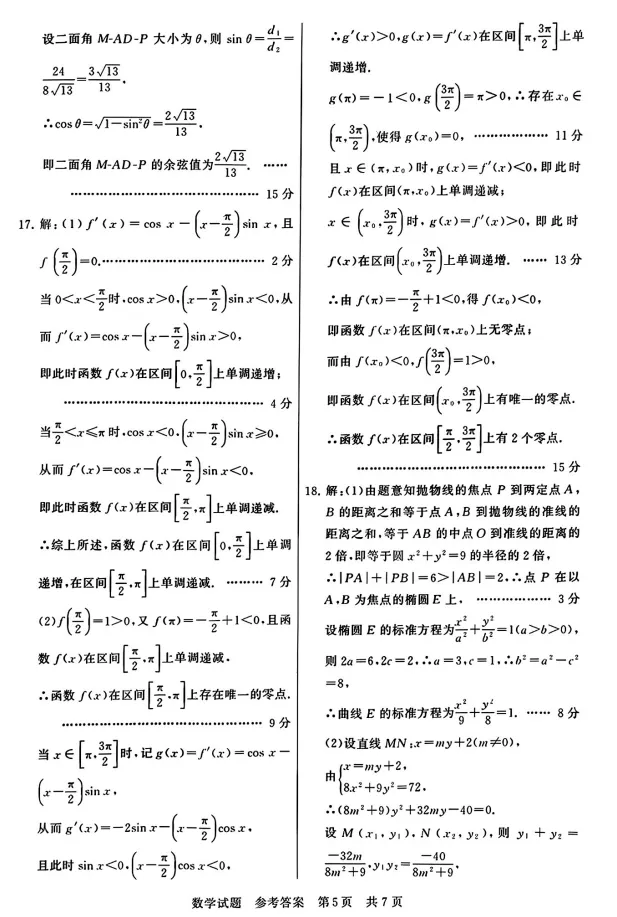 设二面角 M-AD-P 大小为 θ,则 sin θ=d₁/d₂=
24/(8√13)=3√13/13.
∴cos θ=√(1-sin²θ)=2√13/13.
即二面角 M-AD-P 的余弦值为2√13/13. ……
…………………………………… 15 分
17. 解:(1)f′(x)=cos x-(x-π/2)sin x,且
f′(π/2)=0.…………………………………… 2 分
当 0<x<π/2时,cos x>0,(x-π/2)sin x<0,从
而 f′(x)=cos x-(x-π/2)sin x>0,
即此时函数 f(x)在区间[0,π/2]上单调递增;
…………………………………… 4 分
当π/2<x≤π 时,cos x<0,(x-π/2)sin x≥0,
从而 f′(x)=cos x-(x-π/2)sin x<0,
即此时函数 f(x)在区间[π/2,π]上单调递减.
∴综上所述,函数 f(x)在区间[0,π/2]上单调
递增,在区间[π/2,π]上单调递减. ……… 7 分
(2)f(π/2)=1>0,又 f(π)=-π/2+1<0,且函
数 f(x)在区间[π/2,π]上单调递减.
∴函数 f(x)在区间[π/2,π]上存在唯一的零点.
…………………………………… 9 分
当 x∈[π,3π/2]时,记 g(x)=f′(x)=cos x-
(x-π/2)sin x,
从而 g′(x)=-2sin x-(x-π/2)cos x,
且此时 sin x<0,(x-π/2)cos x<0,
∴g′(x)>0,g(x)=f′(x)在区间[π,3π/2]上单
调递增.
g(π)=-1<0,g(3π/2)=π>0,∴存在 x₀∈
(π,3π/2),使得 g(x₀)=0, ……………… 11 分
且 x∈(π,x₀)时,g(x)=f′(x)<0,即此时
f(x)在区间(π,x₀)上单调递减;
x∈(x₀,3π/2)时,g(x)=f′(x)>0,即此时
f(x)在区间(x₀,3π/2)上单调递增. …… 13 分
∴由 f(π)=-π/2+1<0,得 f(x₀)<0,
即函数 f(x)在区间(π,x₀)上无零点;
而由 f(x₀)<0,f(3π/2)=1>0,
即函数 f(x)在区间(x₀,3π/2)上有唯一的零点.
∴函数 f(x)在区间[π/2,3π/2]上有 2 个零点.
…………………………………… 15 分
18. 解:(1)由题意知抛物线的焦点 P 到两定点 A,
B 的距离之和等于点 A,B 到抛物线的准线的
距离之和,等于 AB 的中点 O 到准线的距离的
2 倍,即等于圆 x²+y²=9 的半径的 2 倍,
∴|PA|+|PB|=6>|AB|=2,∴点 P 在以
A,B 为焦点的椭圆 E 上, ……………… 3 分
设椭圆 E 的标准方程为x²/a²+y²/b²=1(a>b>0),
则 2a=6,2c=2,∴a=3,c=1,∴b²=a²-c²
=8,
∴曲线 E 的标准方程为x²/9+y²/8=1. …… 8 分
(2)设直线 MN:x=my+2(m≠0),
由{x=my+2,
8x²+9y²=72.
∴(8m²+9)y²+32my-40=0.
设 M(x₁,y₁),N(x₂,y₂),则 y₁+y₂=
-32m/(8m²+9),y₁y₂=-40/(8m²+9).
数学试题 参考答案 第 5 页 共 7 页